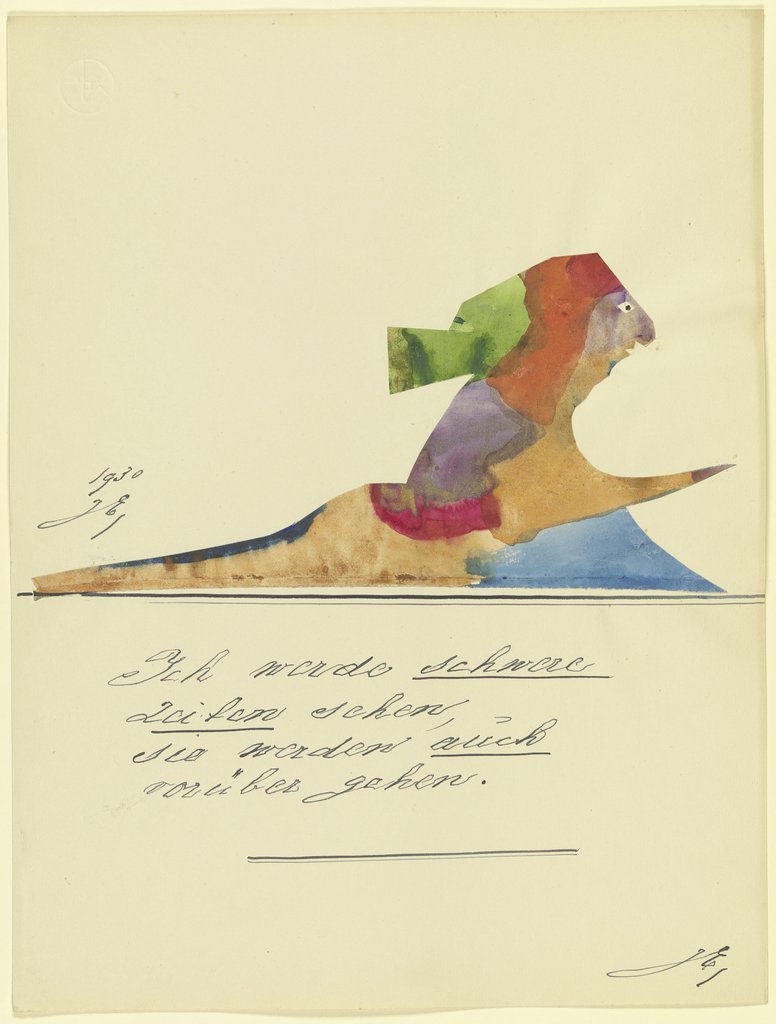 1930
Ich werde schwere
Zeiten sehen,
sie werden auch
vorüber gehen.